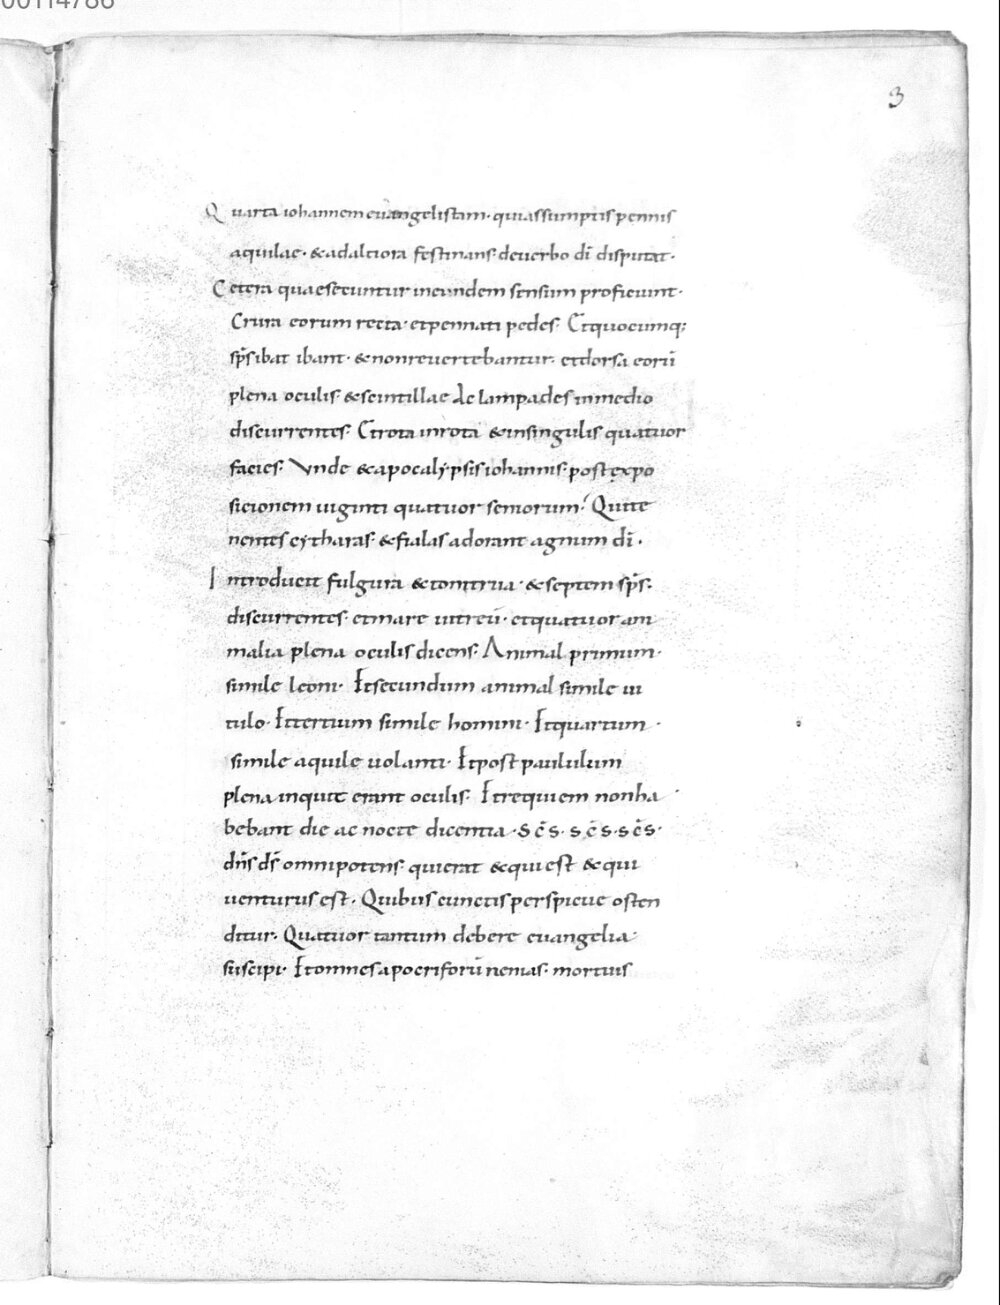 00114786
3
Quarta iohannem euangelistam· qui assumptis pennis
aquilae· & ad altiora festinans· de uerbo dī disputat·
Cetera quae secuntur in eundem sensum proficiunt·
Crura eorum recta· et pennati pedes· Et quocumq;
sp̄s ibat ibant· & non reuertebantur· et dorsa eorū
plena oculis· & scintillae Ac lampades in medio
discurrentes· Et rota in rota & in singulis quatuor
facies· Vnde & apocalypsis iohannis· post expo
sicionem uiginti quatuor seniorum· Qui te
nentes cytharas· & fialas adorant agnum dī·
Introducit fulgura & tonitrua· & septem sp̄s·
discurrentes· et mare uitreū· et quatuor ani
malia plena oculis dicens· Animal primum·
simile leoni· Et secundum animal simile ui
tulo· Et tertium simile homini· Et quartum·
simile aquile uolanti· Et post paululum
plena inquit erant oculis· Et requiem non ha
bebant die ac nocte dicentia· s̄c̄s· s̄c̄s· s̄c̄s·
dn̄s ds̄ omnipotens· qui erat & qui est & qui
uenturus est· Quibus cunctis perspicue osten
ditur· Quatuor tantum debere euangelia
suscipi· Et omnes apocriforū nenias· mortuis